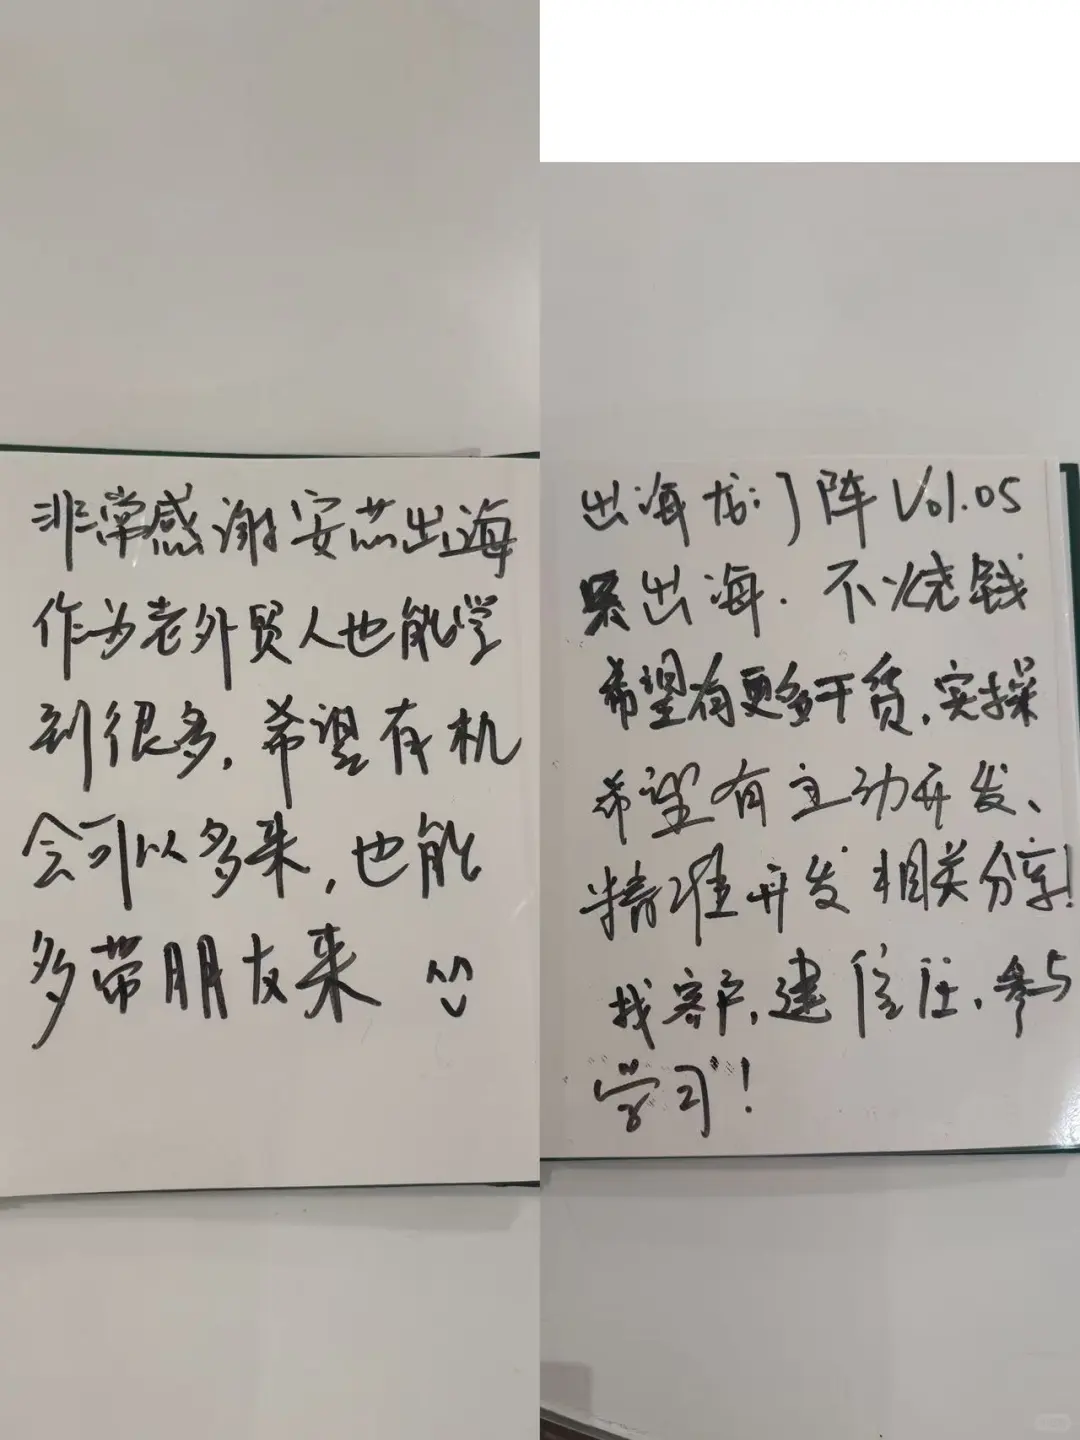 非常感谢安芯出海
作为老外贸人也能学
到很多，希望有机
会可以多来，也能
多带朋友来
出海龙门阵 Vol.05
出海．不烧钱
希望有更多干货，实操
希望有主动开发、
精准开发相关分享！
找客户，建信任，参与
学习！